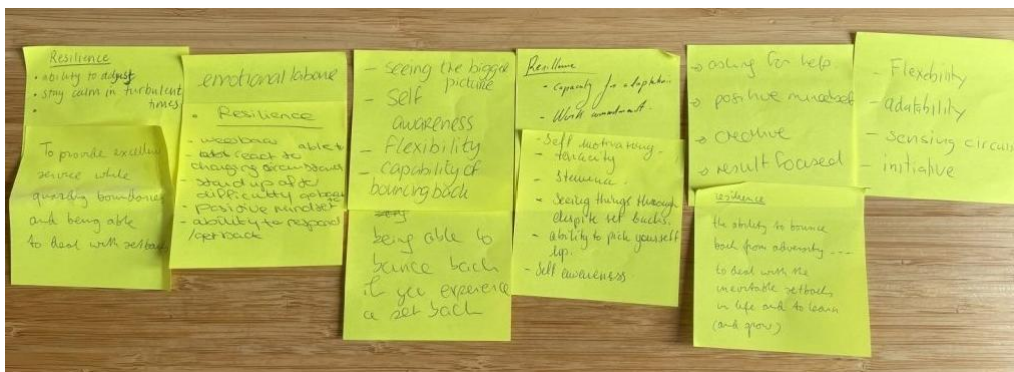 Resilience
• ability to adjust
• stay calm in turbulent
times
•
To provide excellent
service while
guarding boundaries
and being able
to deal with setback
emotional labour
• Resilience
able to
- react to
changing
- stand up after
difficulty
- positive mindset
- ability to respond
/get back
- seeing the bigger
picture
- Self
awareness
- Flexibility
- capability of
bouncing back
being able to
bounce back
if you experience
a set back
Resilience
- capacity for adaptation
- Work commitment.
- Self motivating -
- tenacity
- Stamina.
- Seeing things through
despite set backs.
- ability to pick yourself
up.
- Self awareness.
→ asking for help.
→ positive mindset
→ creative
→ result focused
resilience
the ability to bounce
back from adversity ...
to deal with the
inevitable setbacks
in life and to learn
(and grow)
- Flexebility
- adatability
- sensing circum
- initiative